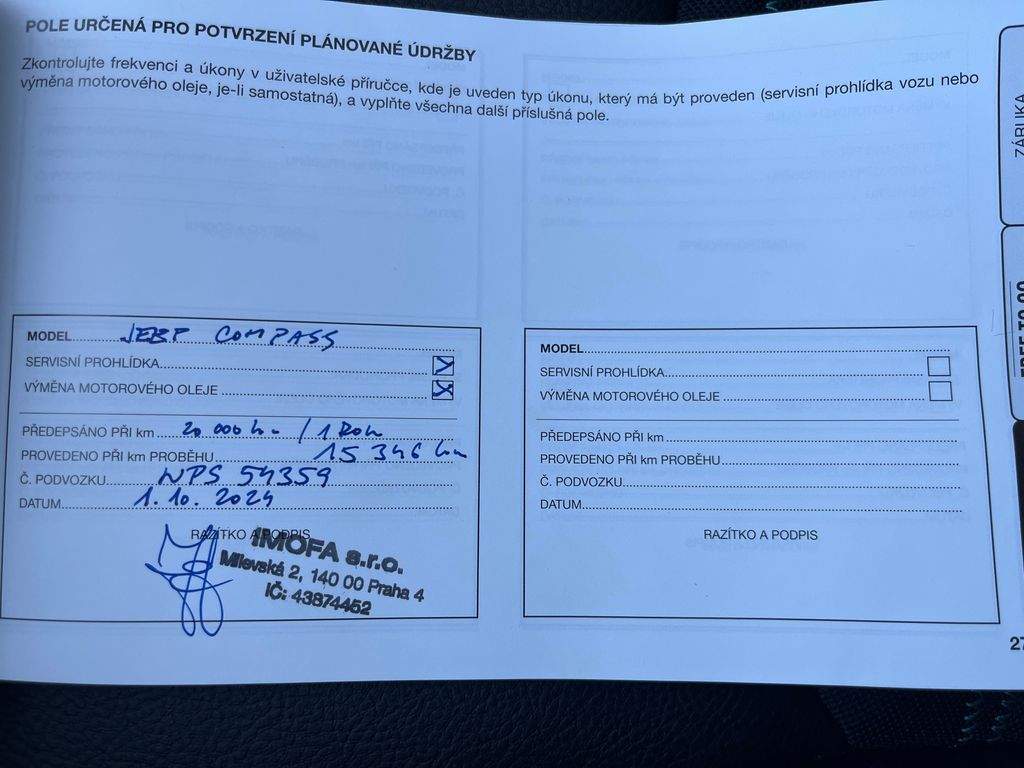 POLE URČENÁ PRO POTVRZENÍ PLÁNOVANÉ ÚDRŽBY
Zkontrolujte frekvenci a úkony v uživatelské příručce, kde je uveden typ úkonu, který má být proveden (servisní prohlídka vozu nebo
výměna motorového oleje, je-li samostatná), a vyplňte všechna další příslušná pole.
ZÁRUKA
MODEL JEEP COMPASS
SERVISNÍ PROHLÍDKA
VÝMĚNA MOTOROVÉHO OLEJE
PŘEDEPSÁNO PŘI km 20 000 km / 1 Rok
PROVEDENO PŘI km PROBĚHU 15 346 km
Č. PODVOZKU WPS 54359
DATUM 1.10.2024
RAZÍTKO A PODPIS
IMOFA s.r.o.
Milevská 2, 140 00 Praha 4
IČ: 43874452
MODEL
SERVISNÍ PROHLÍDKA
VÝMĚNA MOTOROVÉHO OLEJE
PŘEDEPSÁNO PŘI km
PROVEDENO PŘI km PROBĚHU
Č. PODVOZKU
DATUM
RAZÍTKO A PODPIS
27